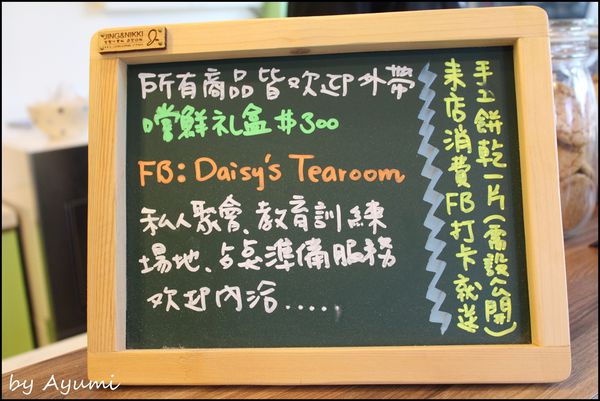 JING&NIKKI
所有商品皆歡迎外帶
嚐鮮礼盒#300
FB: Daisy's Tearoom
私人聚會、教育訓練
場地、點桌準備服務
歡迎內洽.....
來店消費FB打卡就送
手工餅乾一片(需設公開)
by Ayumi